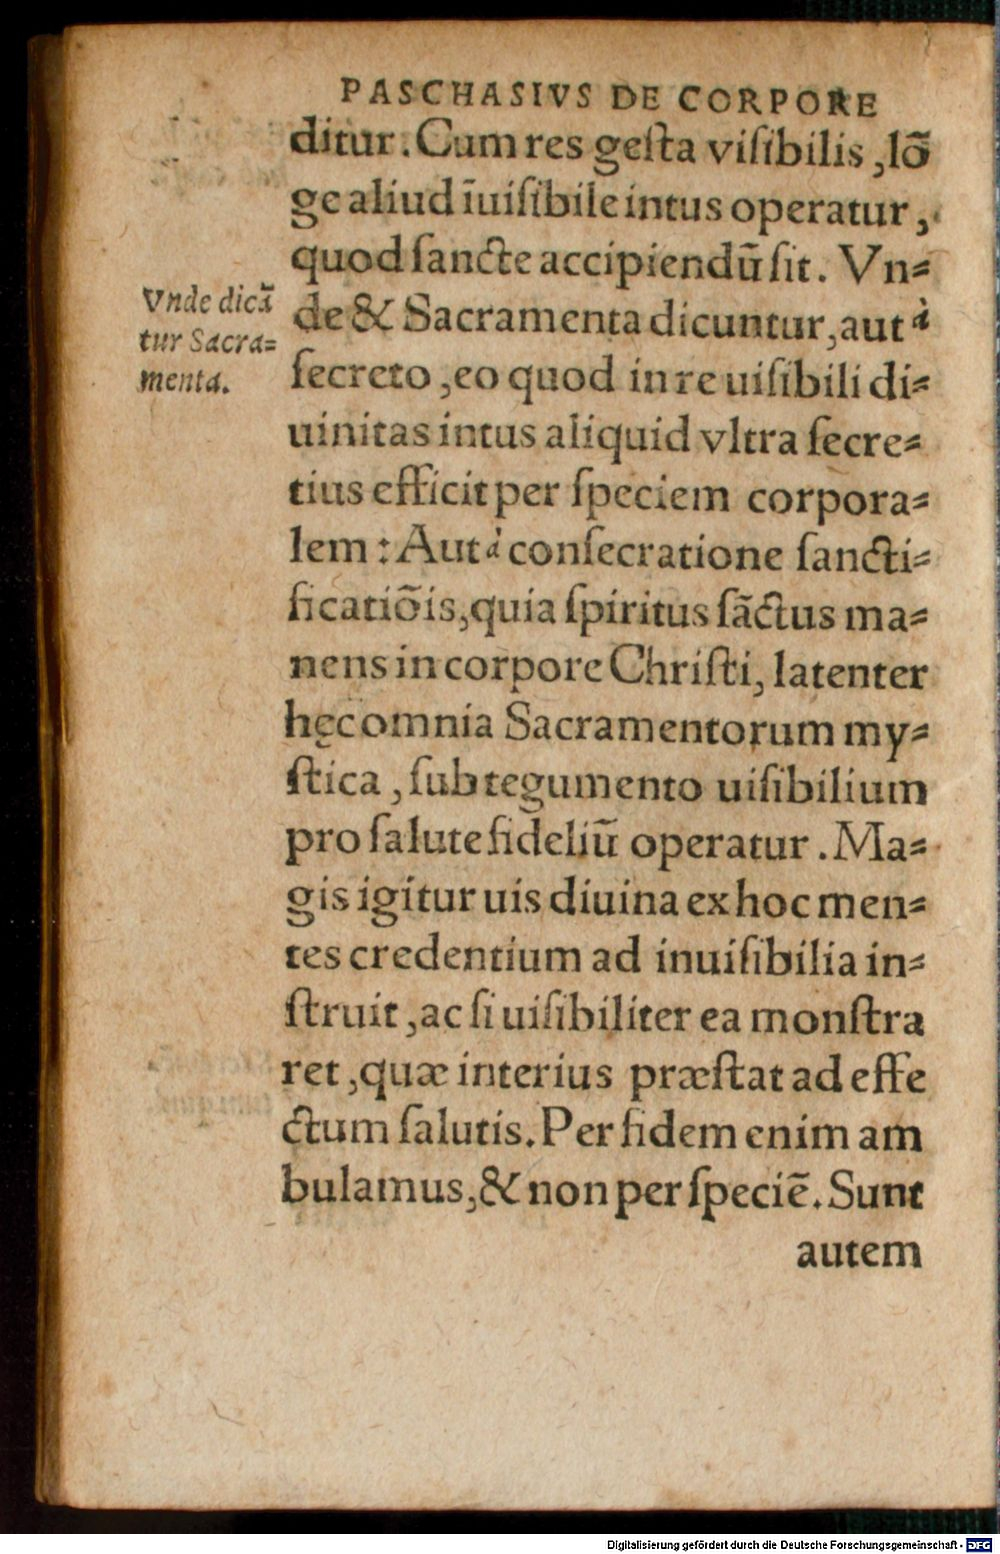 PASCHASIVS DE CORPORE
ditur. Cum res geſta viſibilis, lõ
ge aliud ĩuiſibile intus operatur,
quod ſancte accipiendũ ſit. Vn⸗
de & Sacramenta dicuntur, aut à
ſecreto, eo quod in re uiſibili di⸗
uinitas intus aliquid vltra ſecre⸗
tius efficit per ſpeciem corpora⸗
lem: Aut à conſecratione ſancti⸗
ficatiõis, quia ſpiritus ſãctus ma⸗
nens in corpore Chriſti, latenter
hęc omnia Sacramentorum my⸗
ſtica, ſub tegumento uiſibilium
pro ſalute fideliũ operatur. Ma⸗
gis igitur uis diuina ex hoc men⸗
tes credentium ad inuiſibilia in⸗
ſtruit, ac ſi uiſibiliter ea monſtra
ret, quæ interius præſtat ad effe
ctum ſalutis. Per fidem enim am
bulamus, & non per ſpeciẽ. Sunt
autem
Vnde dicã
tur Sacra⸗
menta.
Digitalisierung gefördert durch die Deutsche Forschungsgemeinschaft - DFG